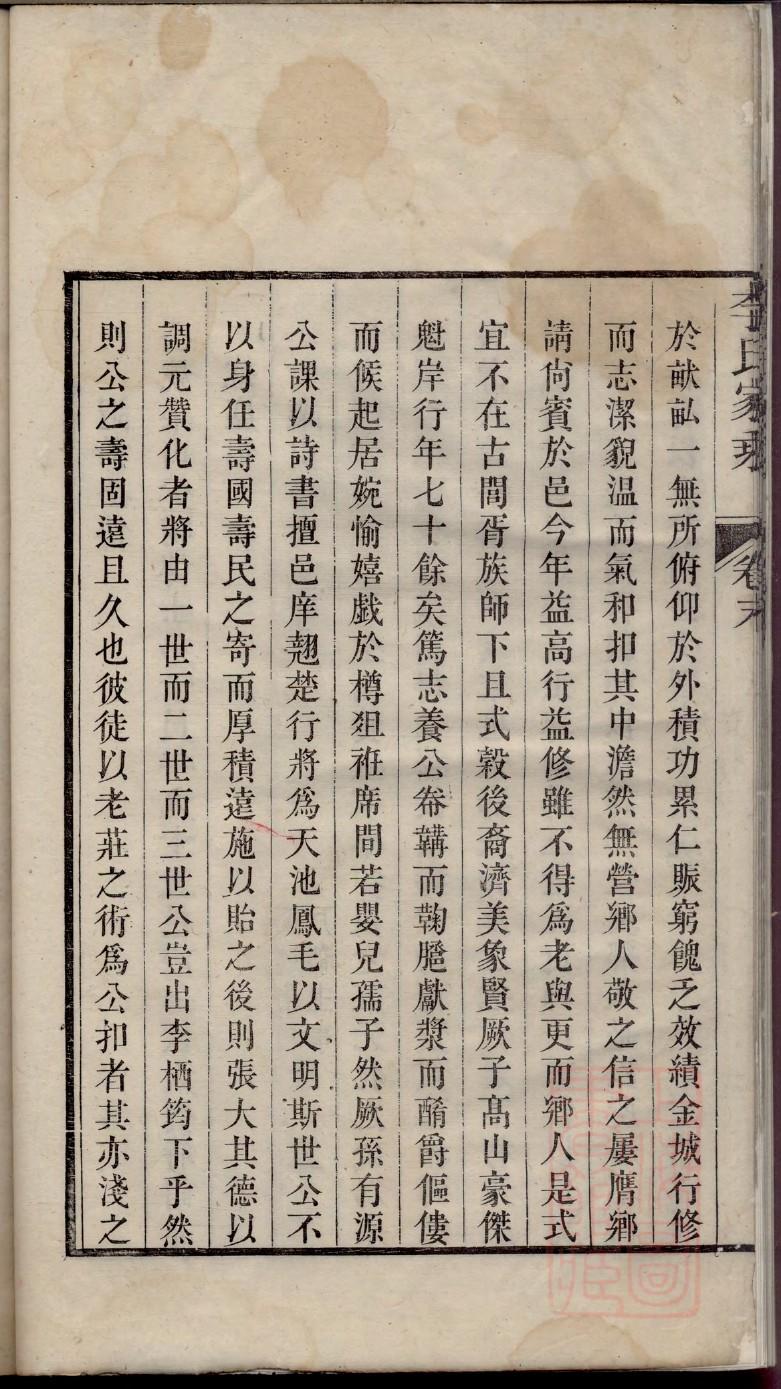 李氏家乘 卷末
於畎畝一無所俯仰於外積功累仁賑窮餽乏效績金城行修
而志潔貌温而氣和扣其中澹然無營鄉人敬之信之屢膺鄉
請尙賓於邑今年益高行益修雖不得爲老與更而鄉人是式
宜不在古閭胥族師下且式穀後裔濟美象賢厥子髙山豪傑
魁岸行年七十餘矣篤志養公帣韝而鞠䠆獻漿而酳爵傴僂
而候起居婉愉嬉戯於樽爼袵席間若嬰兒孺子然厥孫有源
公課以詩書擅邑庠翹楚行將爲天池鳳毛以文明斯世公不
以身任壽國壽民之寄而厚積遠施以貽之後則張大其德以
調元贊化者將由一世而二世而三世公豈出李栖筠下乎然
則公之壽固遠且久也彼徒以老莊之術爲公扣者其亦淺之